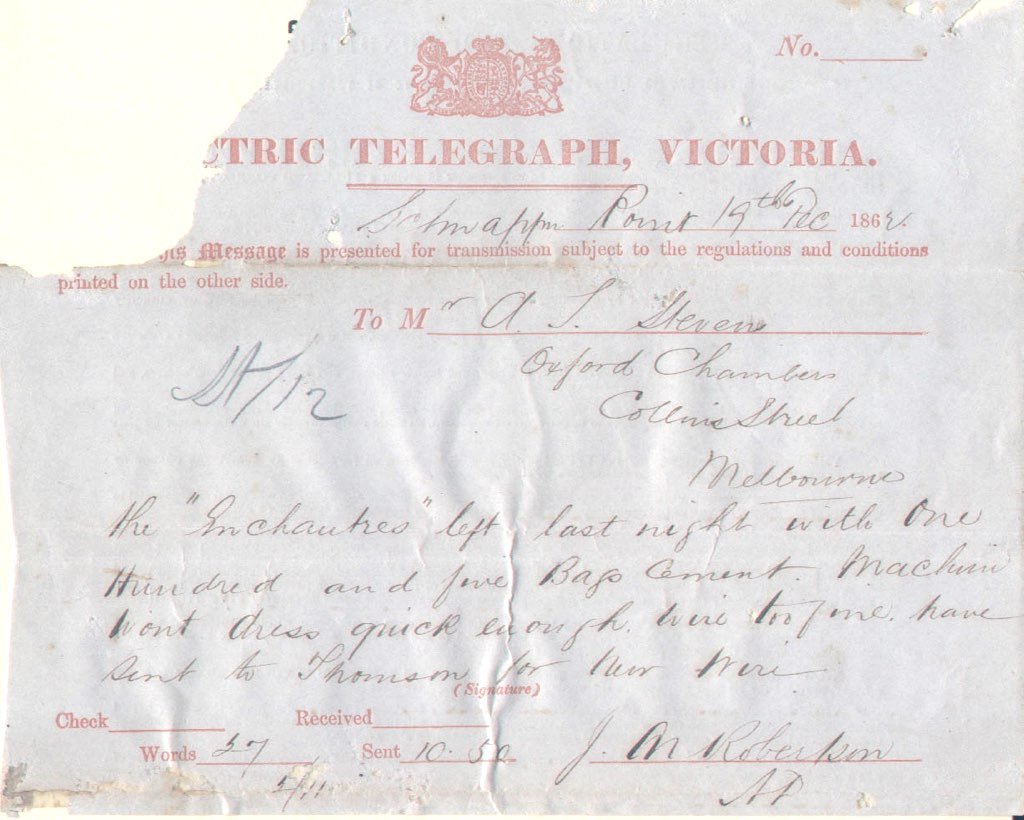 No.
CTRIC TELEGRAPH, VICTORIA.
Schnapper Point 19th Dec 1862.
his Message is presented for transmission subject to the regulations and conditions
printed on the other side.
To Mr A. S. Steven
Oxford Chambers
Collins Street
Melbourne
The "Enchantres" left last night with One
Hundred and five Bags Cement. Machine
wont dress quick enough. wire too fine. have
sent to Thomson for New Wire
(Signature)
Check Received
Words 27 Sent 10.50 J. M Robertson